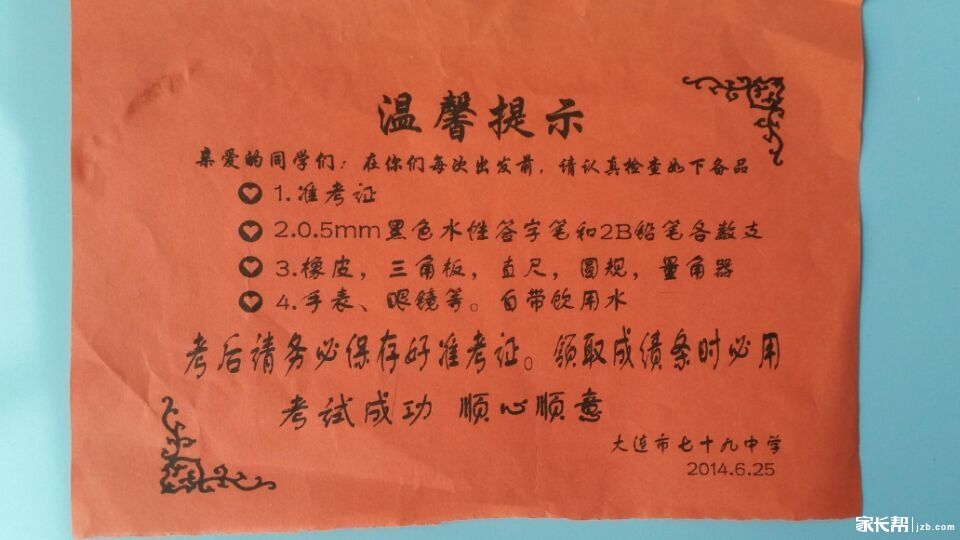 温馨提示
亲爱的同学们：在你们每次出发前，请认真检查如下备品
1.准考证
2.0.5mm黑色水性签字笔和2B铅笔各数支
3.橡皮，三角板，直尺，圆规，量角器
4.手表、眼镜等。自带饮用水
考后请务必保存好准考证。领取成绩条时必用
考试成功 顺心顺意
大连市七十九中学
2014.6.25
家长帮 jzb.com